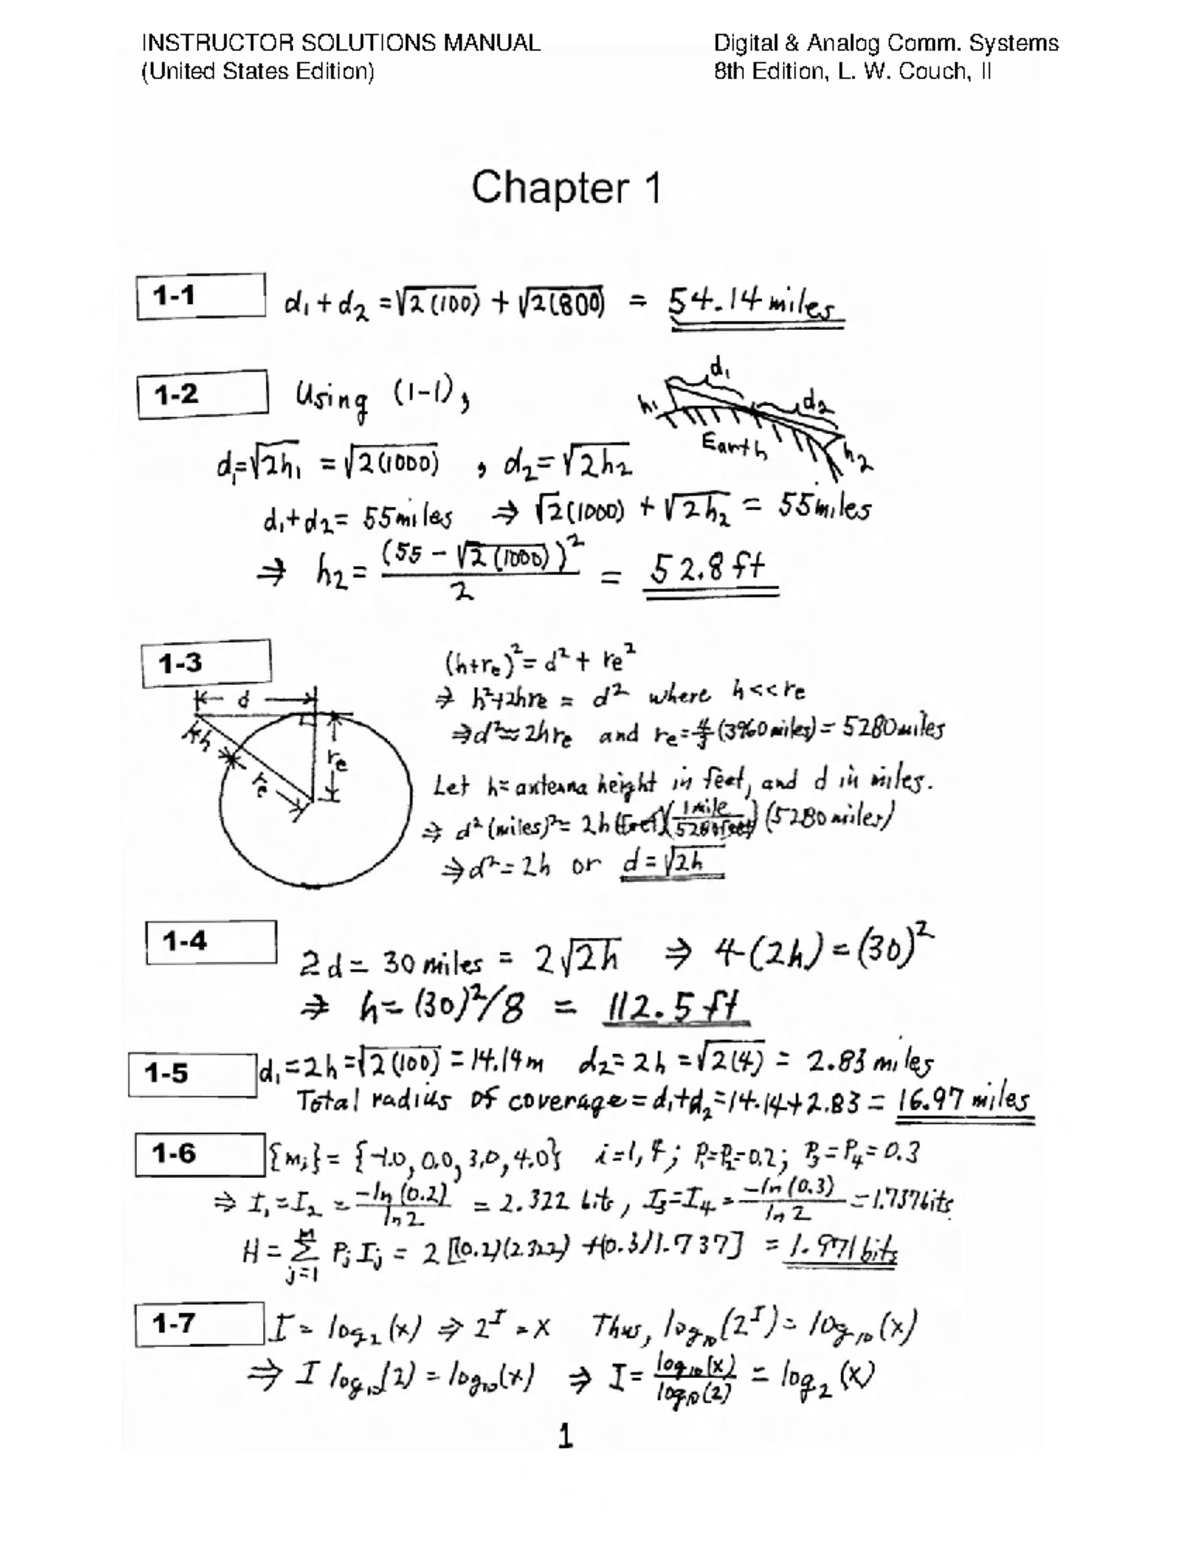 INSTRUCTOR SOLUTIONS MANUAL Digital & Analog Comm. Systems
(United States Edition) 8th Edition, L. W. Couch, II
Chapter 1
1-1 d₁ + d₂ = √2(100) + √2(800) = 54.14 miles
1-2 Using (1-1),
d₁
h₁ d₂
Earth h₂
d₁=√2h₁ = √2(1000) , d₂=√2h₂
d₁+d₂= 55 miles ⇒ √2(1000) + √2h₂ = 55 miles
⇒ h₂ = (55 - √2(1000))² / 2 = 52.8 ft
1-3 (h+re)² = d² + re²
d ⇒ h²+2hre = d² where h<<re
h re re ⇒ d² ≈ 2hre and re = 4/3 (3960 miles) = 5280 miles
Let h= antenna height in feet, and d in miles.
⇒ d² (miles)² = 2h (feet)(1 mile / 5280 feet) (5280 miles)
⇒ d² = 2h or d = √2h
1-4 2d = 30 miles = 2√2h ⇒ 4(2h) = (30)²
⇒ h = (30)²/8 = 112.5 ft
1-5 d₁ = 2h = √2(100) = 14.14 m d₂ = 2h = √2(4) = 2.83 miles
Total radius of coverage = d₁+d₂ = 14.14+2.83 = 16.97 miles
1-6 {mᵢ} = {-1.0, 0.0, 3.0, 4.0} i=1, 4; P₁=P₂=0.2; P₃=P₄=0.3
⇒ I₁=I₂ = -ln(0.2) / ln 2 = 2.322 bits, I₃=I₄ = -ln(0.3) / ln 2 = 1.737 bits
H = Σ M j=1 Pⱼ Iⱼ = 2 [(0.2)(2.322) + (0.3)1.737] = 1.971 bits
1-7 I = log₂(x) ⇒ 2ᴵ = x Thus, log₁₀(2ᴵ) = log₁₀(x)
⇒ I log₁₀(2) = log₁₀(x) ⇒ I = log₁₀(x) / log₁₀(2) = log₂(x)
1